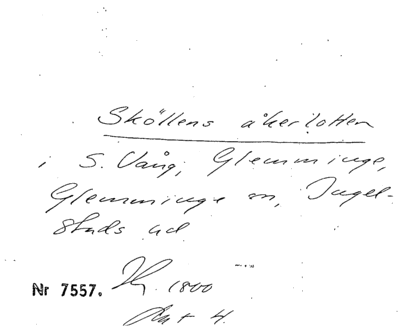 Sköllens åkerlotten
i S. Vång, Glemminge,
Glemminge sn, Ingel-
stads hd
Nr 7557. 1800
4.